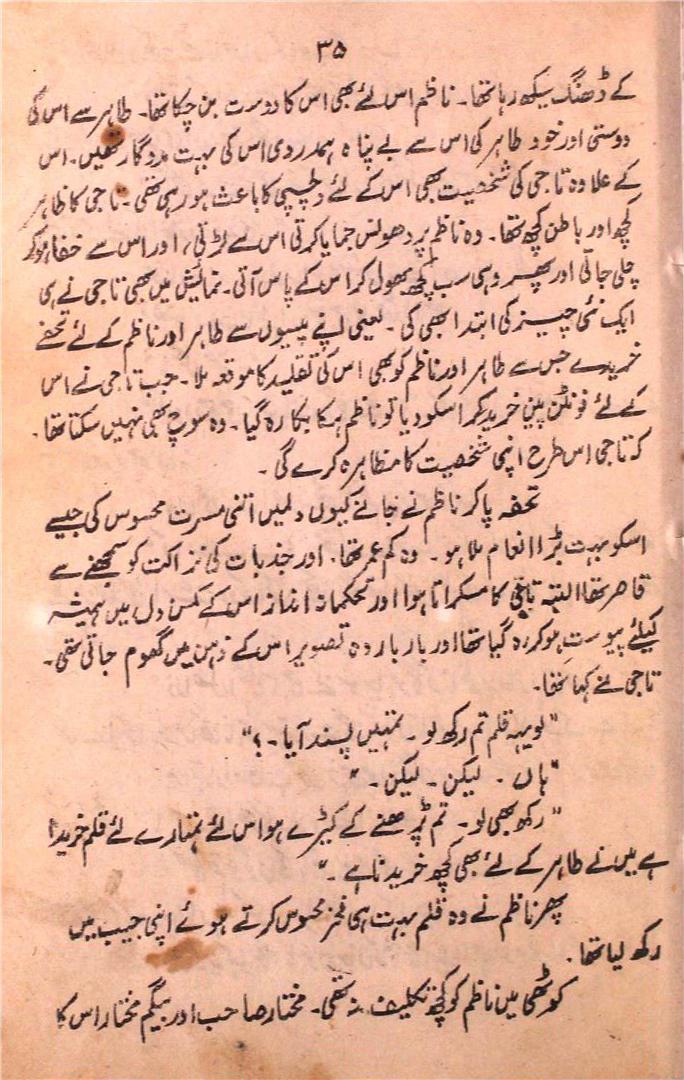 ۳۵
کے ڈھنگ سیکھ رہا تھا۔ ناظم اس لئے بھی اس کا دوست بن چکا تھا۔ طاہر سے اس کی
دوستی اور خود طاہر کی اس سے بے پناہ ہمدردی اس کی بہت مددگار تھیں۔ اس
کے علاوہ تاجی کی شخصیت بھی اس کے لئے دلچسپی کا باعث ہو رہی تھی۔ تاجی کا ظاہر
کچھ اور باطن کچھ تھا۔ وہ ناظم پر دھونس جمایا کرتی اس سے لڑتی، اور اس سے خفا ہو کر
چلی جاتی اور پھر وہی سب کچھ بھول کر اس کے پاس آتی۔ نمائیش میں بھی تاجی نے ہی
ایک نئی چیز کی ابتدا بھی کی۔ یعنی اپنے پیسوں سے طاہر اور ناظم کے لئے تحفے
خریدے جس سے طاہر اور ناظم کو بھی اس کی تقلید کا موقعہ ملا۔ جب تاجی نے اس
کے لئے فونٹن پین خرید کر اسکو دیا تو ناظم ہکا بکا رہ گیا۔ وہ سوچ بھی نہیں سکتا تھا۔
کہ تاجی اس طرح اپنی شخصیت کا مظاہرہ کرے گی۔
تحفہ پا کر ناظم نے جانے کیوں دلمیں اتنی مسرت محسوس کی جیسے
اسکو بہت بڑا انعام ملا ہو۔ وہ کم عمر تھا۔ اور جذبات کی نزاکت کو سمجھنے سے
قاصر تھا البتہ تاجی کا مسکراتا ہوا اور تحکمانہ انداز اس کے کمسن دل میں ہمیشہ
کیلئے پیوست ہو کر رہ گیا تھا اور بار بار وہ تصویر اس کے ذہن میں گھوم جاتی تھی۔
تاجی نے کہا تھا۔
"لو یہہ قلم تم رکھ لو۔ تمہیں پسند آیا۔؟"
"ہاں۔ لیکن۔ لیکن۔"
"رکھ بھی لو۔ تم پڑھنے کے کیڑے ہو اس لئے تمہارے لئے قلم خریدا
ہے میں نے طاہر کے لئے بھی کچھ خریدنا ہے۔"
پھر ناظم نے وہ قلم بہت ہی فخر محسوس کرتے ہوئے اپنی جیب میں
رکھ لیا تھا۔
کوٹھی میں ناظم کو کچھ تکلیف نہ تھی۔ مختار صاحب اور بیگم مختار اس کا